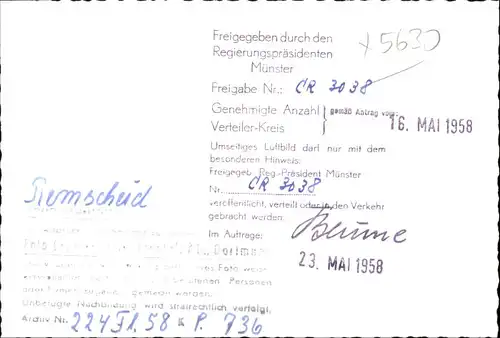 Freigegeben durch den
Regierungspräsidenten
Münster
x 5630
Freigabe Nr.: CR 3038
Genehmigte Anzahl
Verteiler-Kreis
gemäß Antrag vom:
16. MAI 1958
Umseitiges Luftbild darf nur mit dem
besonderen Hinweis:
Freigegeb. Reg.-Präsident Münster
Nr. CR 3038
veröffentlicht, verteilt oder in den Verkehr
gebracht werden.
Im Auftrage:
Blume
23. MAI 1958
Remscheid
Foto
Dortmund
Foto weder
Personen
oder Firmen zugängl. gemacht werden.
Unbefugte Nachbildung wird strafrechtlich verfolgt.
Archiv Nr. 224 Fl. 58 K P. 736